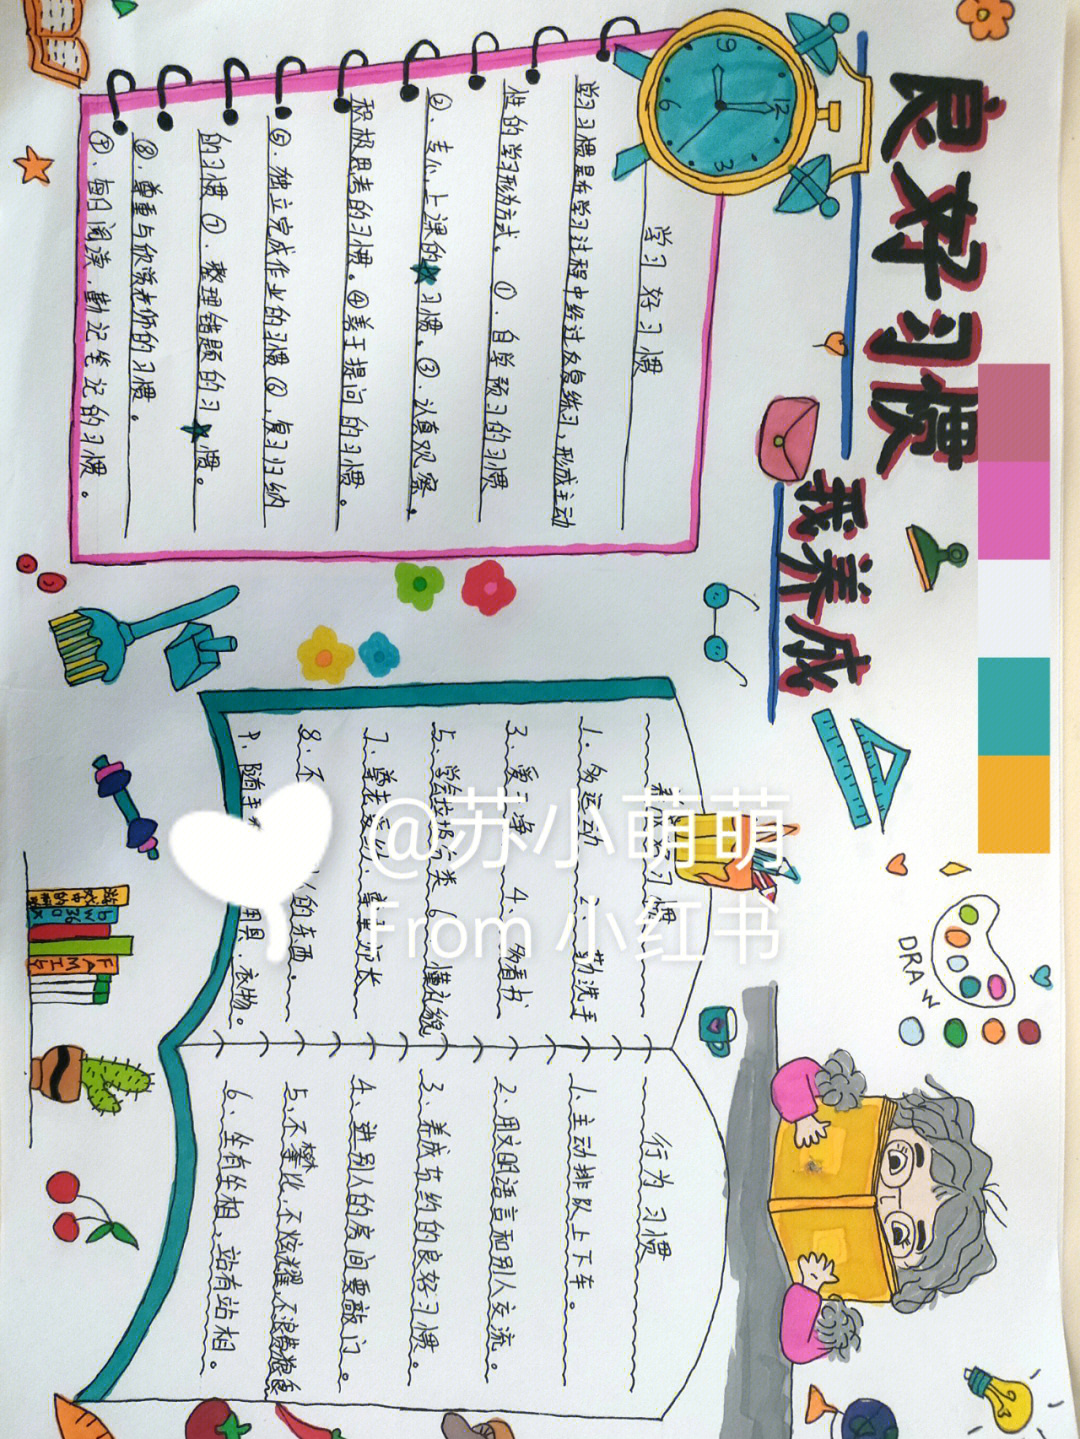 良好习惯
我养成
学习好习惯
学习习惯是在学习过程中经过反复练习，形成主动
性的学习形为方式。①．自学预习的习惯
②．专心上课的习惯。③．认真观察。
积极思考的习惯。④善于提问的习惯。
⑤．独立完成作业的习惯⑥．复习归纳
的习惯⑦．整理错题的习惯。
⑧．尊重与欣赏老师的习惯。
⑨．每日阅读．勤记笔记的习惯。
好习惯
1．多运动 2．勤洗手
3．爱干净 4．多看书
5．学会垃圾分类 6．懂礼貌
7．尊老爱幼．尊重师长
8．不 人的东西．
9．随手 用具．衣物。
行为习惯
1．主动排队上下车。
2．用文明语言和别人交流。
3．养成节约的良好习惯。
4．进别人的房间要敲门。
5．不攀比，不炫耀，不浪费粮食
6．坐有坐相，站有站相。
DRAW
FAMILY
12
3
6
9
@苏小萌萌
From 小红书